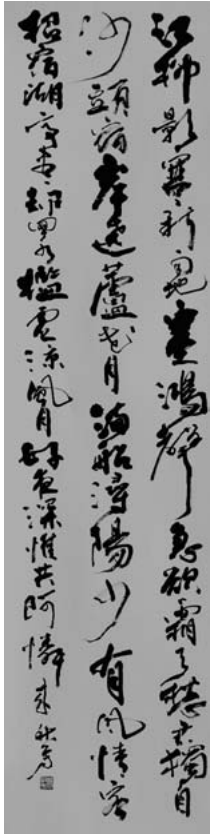 江柳影寒新雨地塞鴻聲急欲霜天愁君獨向
沙頭宿水繞蘆花月滿船潯陽少有風情客
招宿湖亭盡却回水檻虛涼風月好夜深惟共阿憐來